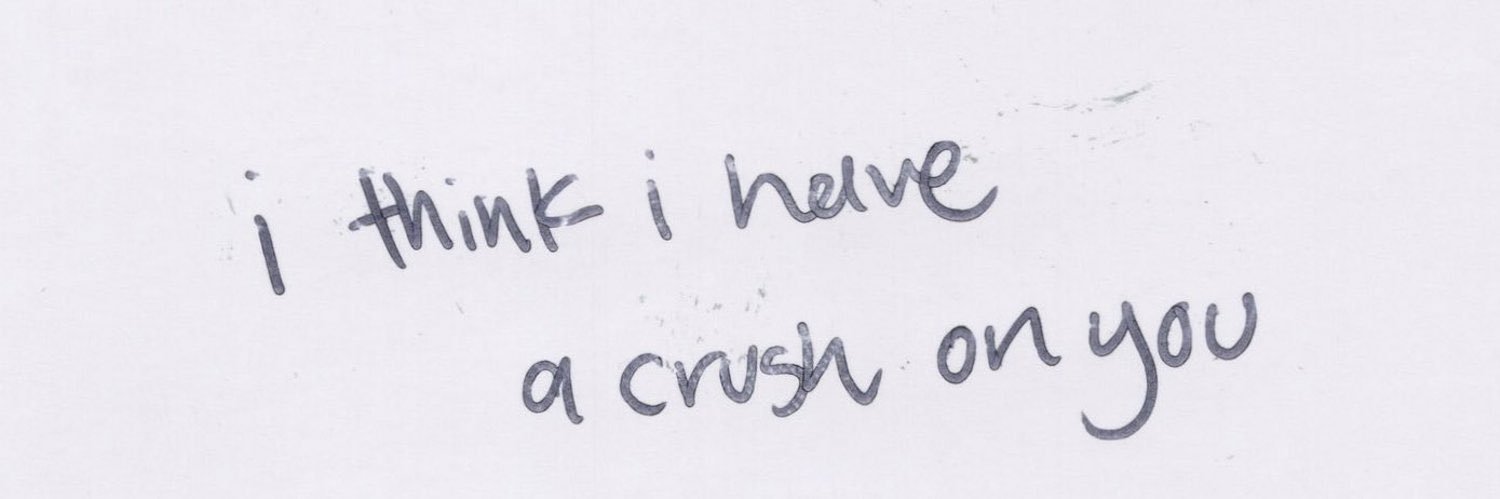 i think i have
a crush on you